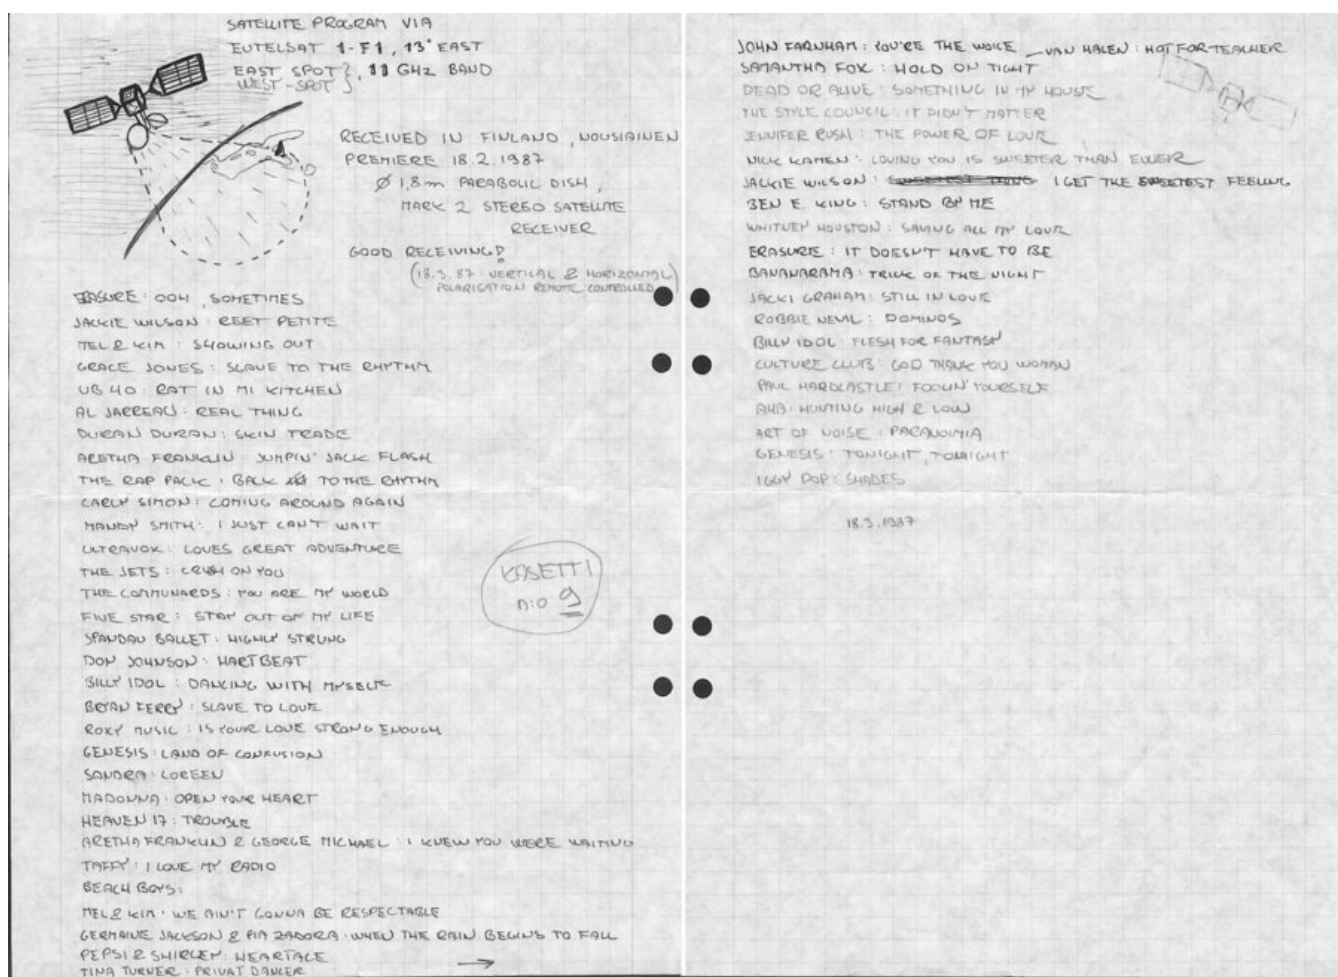 SATELLITE PROGRAM VIA
EUTELSAT 1-F1, 13° EAST
EAST SPOT }, 11 GHz BAND
WEST-SPOT }
RECEIVED IN FINLAND, NOUSIAINEN
PREMIERE 18.2.1987
Ø 1,8m PARABOLIC DISH,
MARK 2 STEREO SATELLITE
RECEIVER
GOOD RECEIVING!
(18.3.87 VERTICAL & HORIZONTAL)
POLARISATION REMOTE CONTROLLED
ERASURE: OOH, SOMETIMES
JACKIE WILSON: REET PETITE
MEL & KIM: SHOWING OUT
GRACE JONES: SLAVE TO THE RHYTHM
UB 40: RAT IN MI KITCHEN
AL JARREAU: REAL THING
DURAN DURAN: SKIN TRADE
ARETHA FRANKLIN: JUMPIN' JACK FLASH
THE RAP PACK: BACK TO THE RHYTHM
CARLY SIMON: COMING AROUND AGAIN
MANDY SMITH: I JUST CAN'T WAIT
ULTRAVOX: LOVES GREAT ADVENTURE
THE JETS: CRUSH ON YOU
THE COMMUNARDS: YOU ARE MY WORLD
FIVE STAR: STAY OUT OF MY LIFE
SPANDAU BALLET: HIGHLY STRUNG
DON JOHNSON: HARTBEAT
BILLY IDOL: DANCING WITH MYSELF
BRYAN FERRY: SLAVE TO LOVE
ROXY MUSIC: IS YOUR LOVE STRONG ENOUGH
GENESIS: LAND OF CONFUSION
SANDRA: LOREEN
MADONNA: OPEN YOUR HEART
HEAVEN 17: TROUBLE
ARETHA FRANKLIN & GEORGE MICHAEL: I KNEW YOU WERE WAITING
TAFFY: I LOVE MY RADIO
BEACH BOYS:
MEL & KIM: WE AIN'T GONNA BE RESPECTABLE
GERMAINE JACKSON & PIA ZADORA: WHEN THE RAIN BEGINS TO FALL
PEPSI & SHIRLEY: HEARTACE
TINA TURNER: PRIVAT DANCER
→
KASETTI
n:o 9
JOHN FARNHAM: YOU'RE THE VOICE — VAN HALEN: HOT FOR TEACHER
SAMANTHA FOX: HOLD ON TIGHT
DEAD OR ALIVE: SOMETHING IN MY HOUSE
THE STYLE COUNCIL: IT DIDN'T MATTER
JENNIFER RUSH: THE POWER OF LOVE
NICK KAMEN: LOVING YOU IS SWEETER THAN EVER
JACKIE WILSON: I GET THE SWEETEST FEELING
BEN E. KING: STAND BY ME
WHITNEY HOUSTON: SAVING ALL MY LOVE
ERASURE: IT DOESN'T HAVE TO BE
BANANARAMA: TRICK OF THE NIGHT
JACKI GRAHAM: STILL IN LOVE
ROBBIE NEVIL: DOMINOS
BILLY IDOL: FLESH FOR FANTASY
CULTURE CLUB: GOD THANK YOU WOMAN
PAUL HARDCASTLE: FOOLIN' YOURSELF
AHA: HUNTING HIGH & LOW
ART OF NOISE: PARANOIMIA
GENESIS: TONIGHT, TONIGHT
IGGY POP: SHADES
18.3.1987